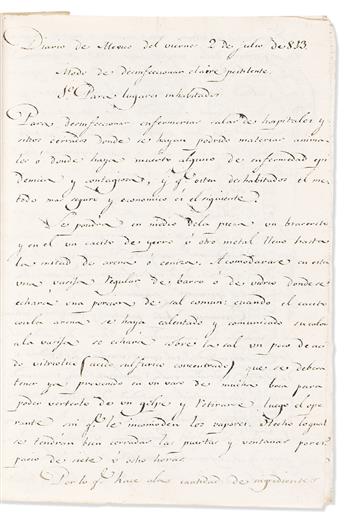 Diario de Mexico del viernes 2 de julio de 813.
Modo de desinfeccionar el aire pestilente.
1º Para lugares inhabitados
Para desinfeccionar enfermerias salas de hospitales y
sitios cerrados donde se hayan podrido materias anima-
les ó donde haya muerto alguno de enfermedad epi-
demica y contagiosa, y qe. esten deshabitados el me-
todo mas seguro y economico es el siguiente:
Se pondra en medio de la pieza un braserito
y en el un cacito de yerro ó otro metal lleno hasta
la mitad de arena ó ceniza. Acomodarase en esta
una vasija regular de barro ó de vidrio donde se
echara una porcion de sal comun: cuando el cacito
con la arena se haya calentado y comunicado su calor
a la vasija se echara sobre la sal un poco de aci-
do vitriolico (acido sulfurico concentrado) que se debera
tener ya prevenido en un vaso de mucha boca para
poder verterlo de un golpe y retirarse luego el ope-
rante sin qe. le incomoden los vapores. Hecho lo qual
se tendran bien cerradas las puertas y ventanas por es-
pacio de siete ó ocho horas.
Por lo qe. hace a la cantidad de ingredientes